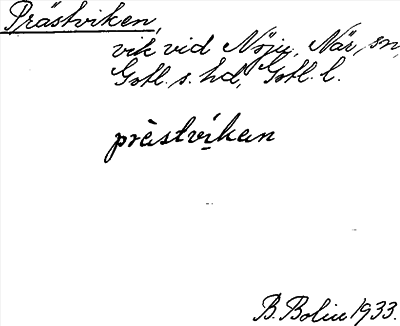 Prästviken,
vik vid Nöju, När, sn,
Gotl. s. hd, Gotl. l.
prästvikan
B. Bolin 1933.